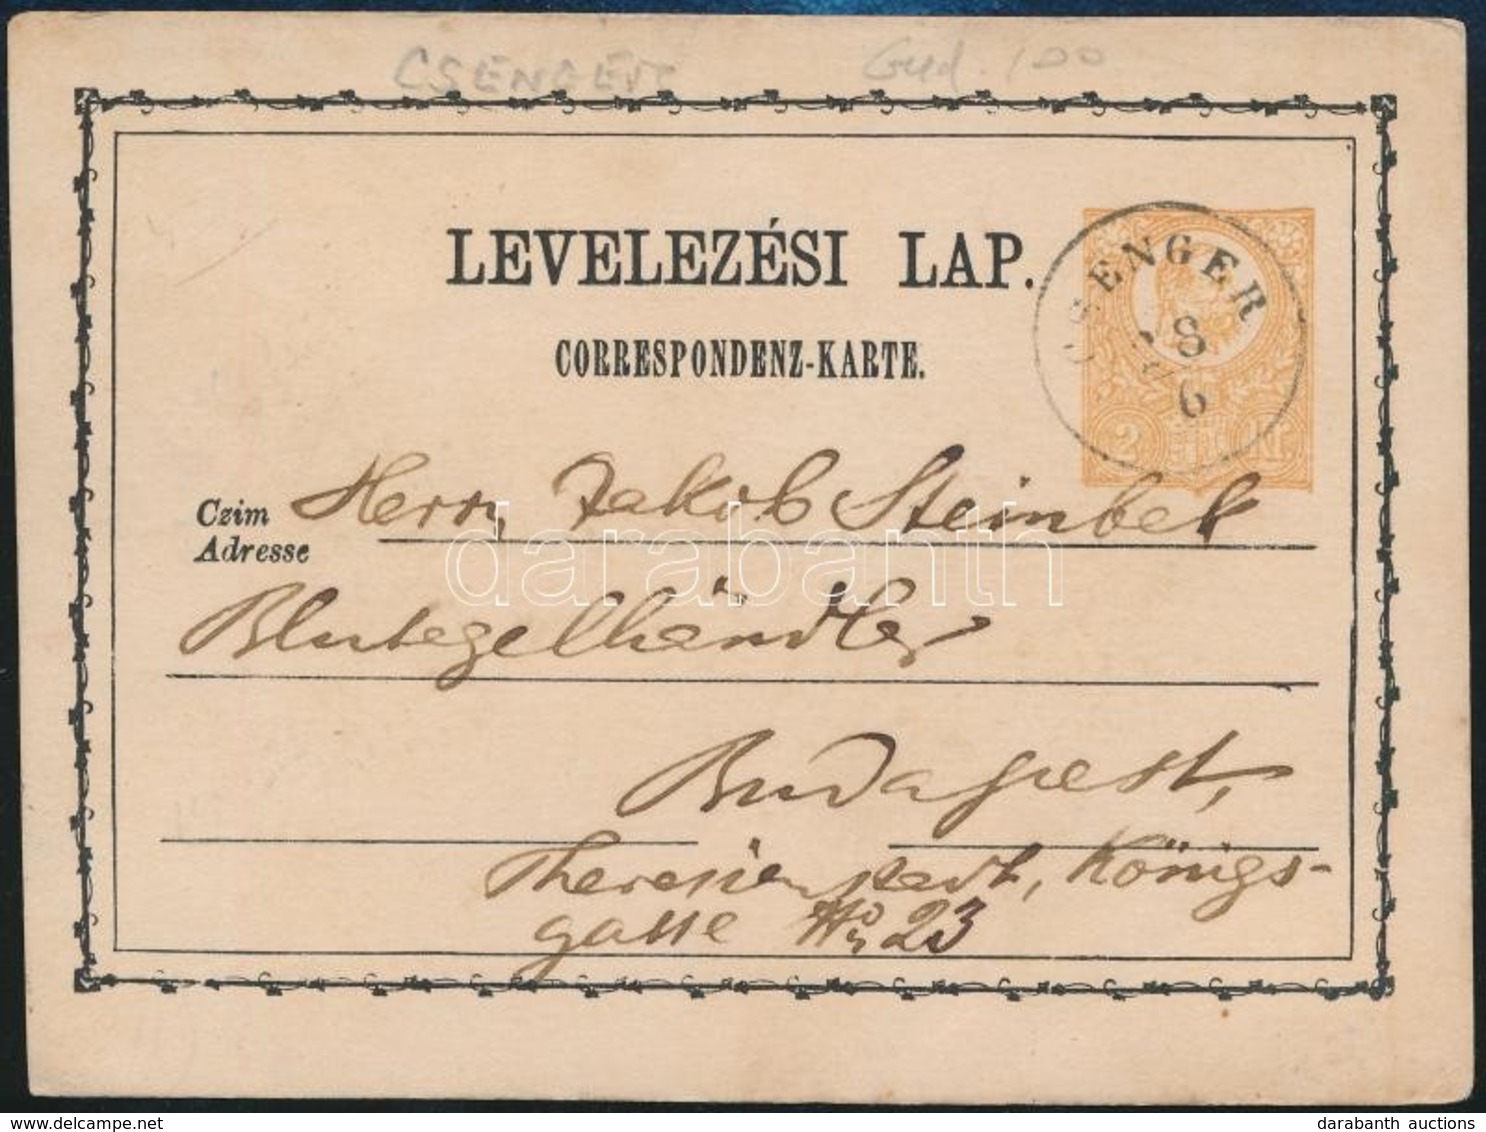 CSENGER Gud. 100
LEVELEZÉSI LAP.
CORRESPONDENZ-KARTE.
CSENGER
28/6
2 Kr.
Czim
Adresse
Herrn Jakob Steinbek
Blutegelhändler
Budapest,
Theresienstadt, Königs-
gasse No 23
darabanth
darabanth auctions